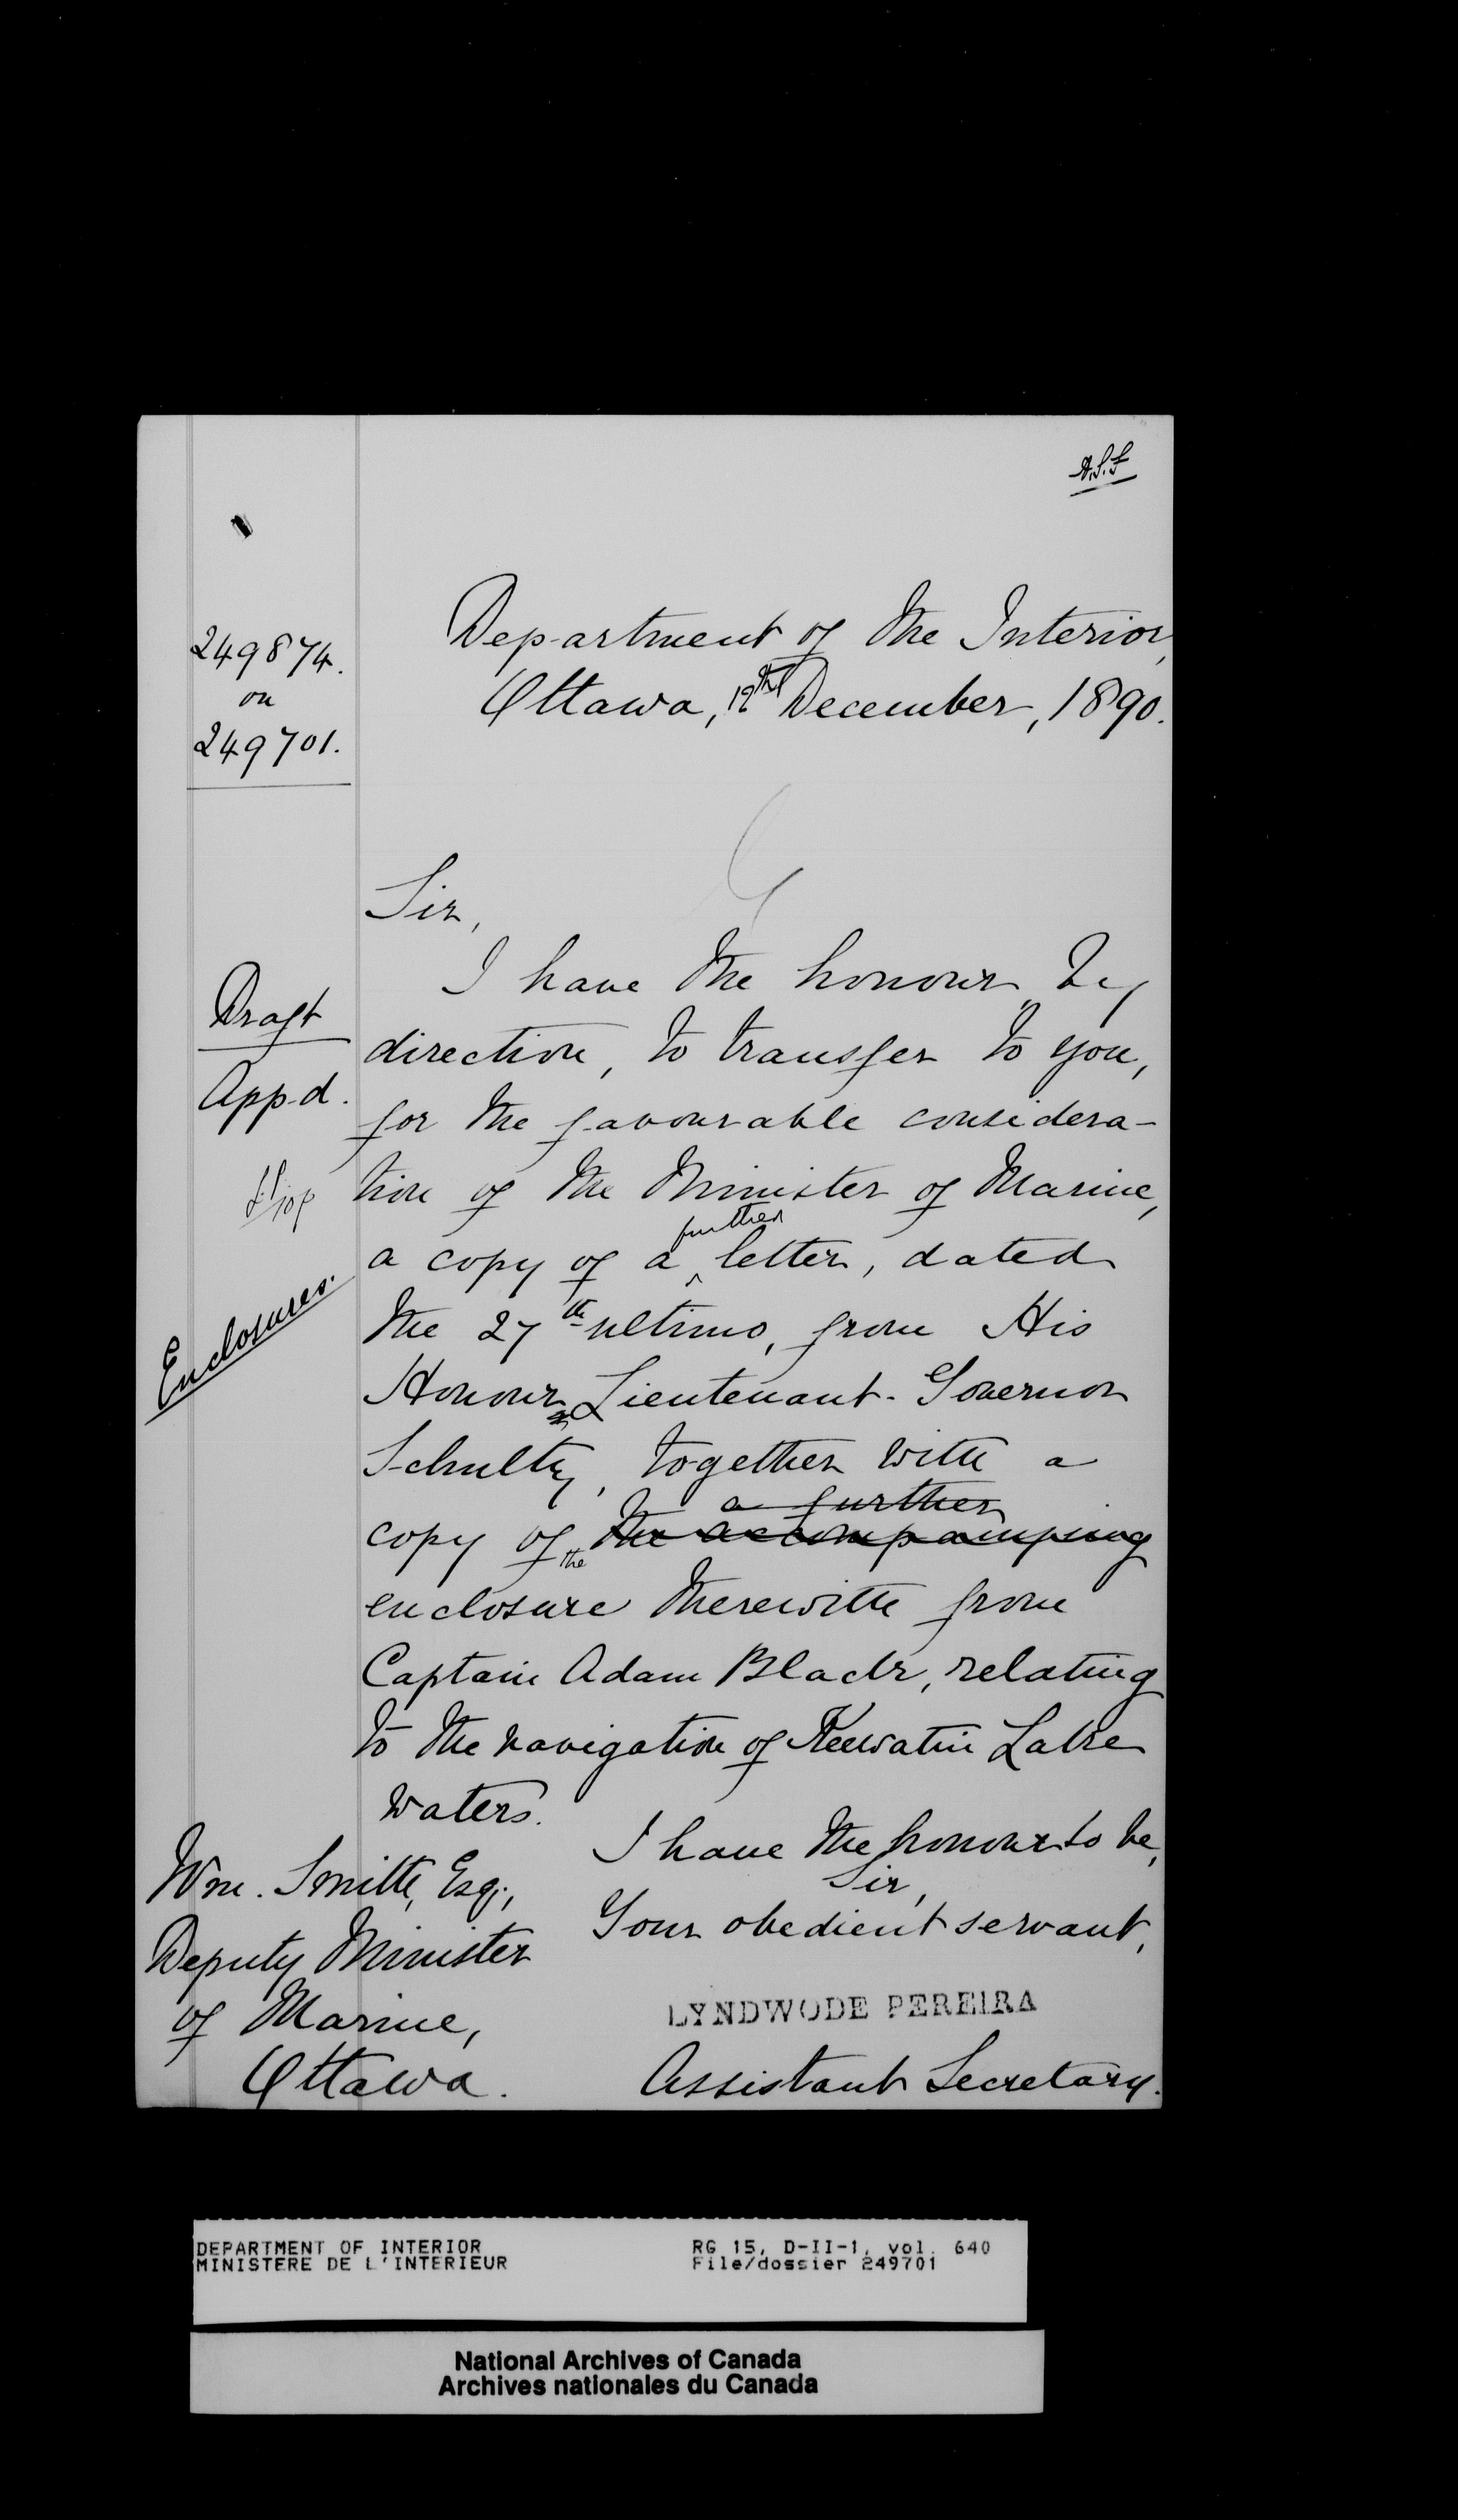 249874.
on
249701.
Department of the Interior,
Ottawa, 12th December, 1890.
Sir,
Draft
App.d.
Enclosures.
I have the honour, by
direction, to transfer to you,
for the favourable considera-
tion of the Minister of Marine,
a copy of a further letter, dated
the 27th ultimo, from His
Honour Lieutenant-Governor
Schultz, together with a
a further
copy of the the accompanying
enclosure therewith from
Captain Adam Black, relating
to the navigation of Keewatin Lake
waters.
I have the honour to be,
Sir,
Your obedient servant,
LYNDWODE PEREIRA
Assistant Secretary.
Wm. Smith, Esq.,
Deputy Minister
of Marine,
Ottawa.
DEPARTMENT OF INTERIOR RG 15, D-II-1, vol. 640
MINISTERE DE L'INTERIEUR File/dossier 249701
National Archives of Canada
Archives nationales du Canada